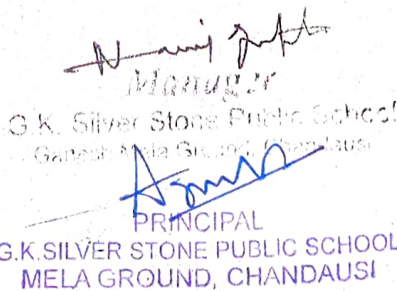 Manager
G.K. Silver Stone Public School
Ganesh Mela Ground, Chandausi
PRINCIPAL
G.K.SILVER STONE PUBLIC SCHOOL
MELA GROUND, CHANDAUSI